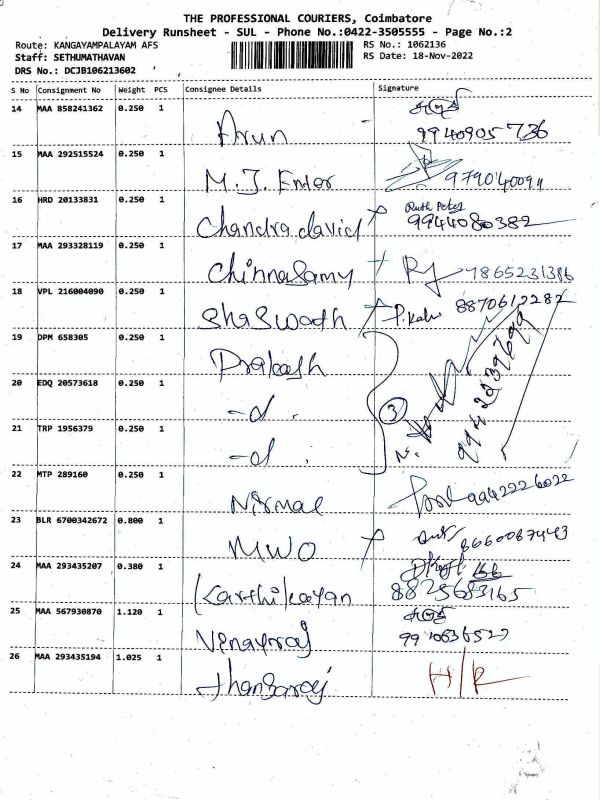 THE PROFESSIONAL COURIERS, Coimbatore
Delivery Runsheet - SUL - Phone No.:0422-3505555 - Page No.:2
Route: KANGAYAMPALAYAM AFS RS No.: 1062136
Staff: SETHUMATHAVAN RS Date: 18-Nov-2022
DRS No.: DCJB106213602
S No Consignment No Weight PCS Consignee Details Signature
14 MAA 858241362 0.250 1
Arun 9940905736
15 MAA 292515524 0.250 1
M.J. Enter
16 HRD 20133831 0.250 1 Ruth Peter
Chandra david 9944080382
17 MAA 293328119 0.250 1
Chinnasamy 7865231386
18 VPL 216004090 0.250 1
Shaswath 8870612282
19 DPM 658305 0.250 1
Prakash
20 EDQ 20573618 0.250 1
-d. 3
21 TRP 1956379 0.250 1
-d.
22 MTP 289160 0.250 1
Nirmal 9442226022
23 BLR 6700342672 0.800 1
MWO 8660087443
24 MAA 293435207 0.380 1
Karthikayan 8825683165
25 MAA 567930870 1.120 1
Vinayraj
26 MAA 293435194 1.025 1
thangaraj H/R